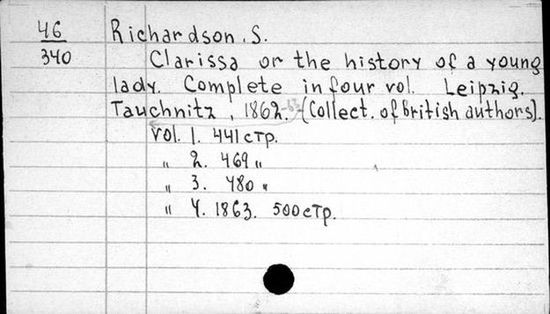 46 Richardson, S.
340 Clarissa or the history of a young
lady. Complete in four vol. Leipzig.
Tauchnitz, 1862.-63 (Collect. of British authors).
Vol. 1. 441 стр.
" 2. 469 "
" 3. 480 "
" 4. 1863. 500 стр.